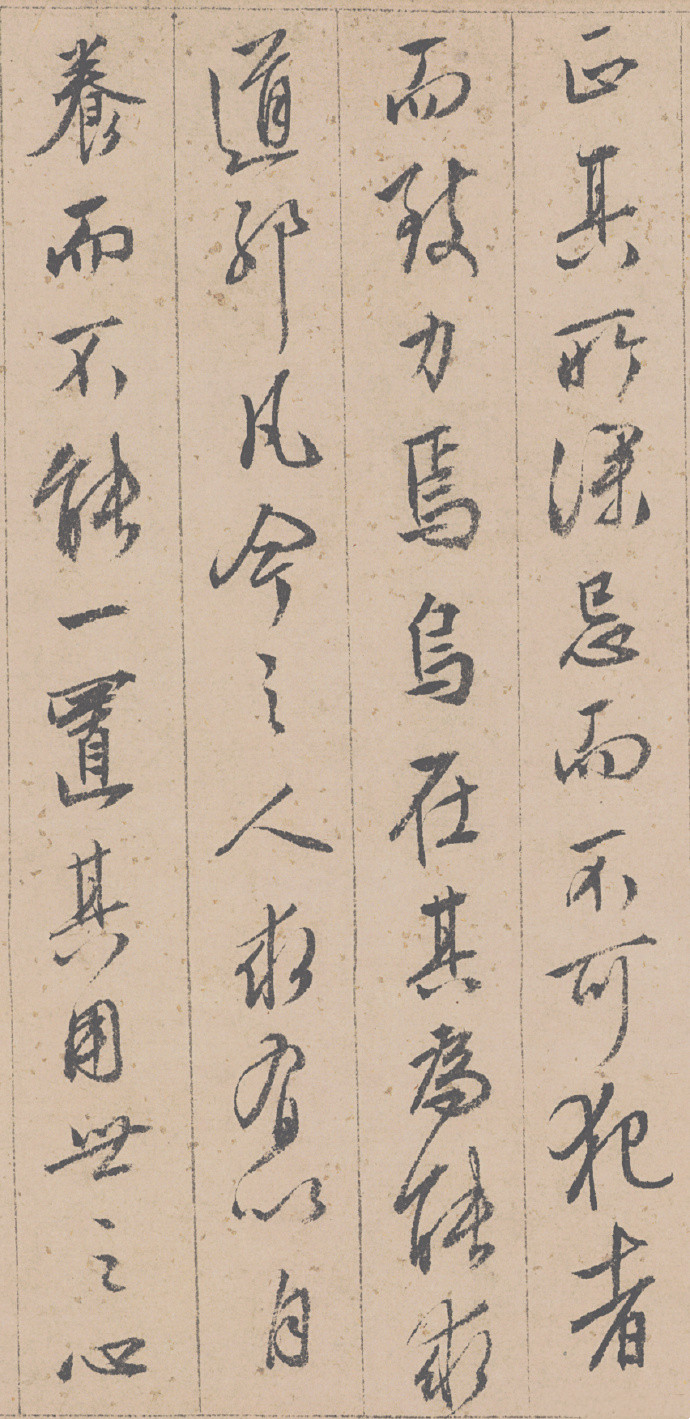 正其所深忌而不可犯者
而致力焉烏在其為能求
道耶凡今之人求有以自
養而不能一置其用世之心